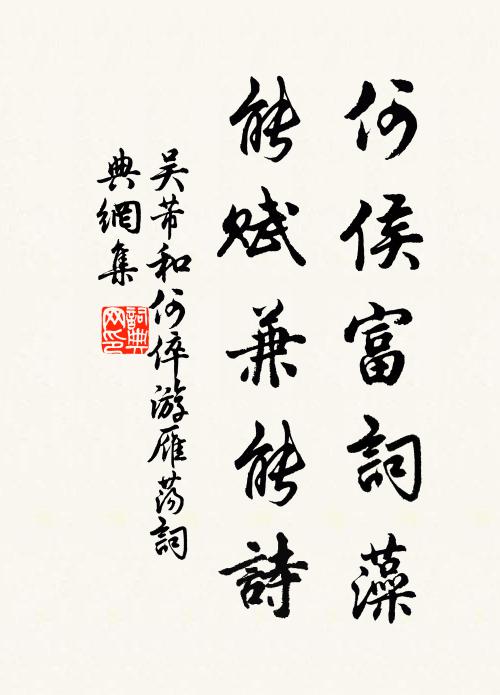 何侯富詞藻
能賦兼能詩
吴芾和何倅游雁蕩詞
典網集
詞典
网印